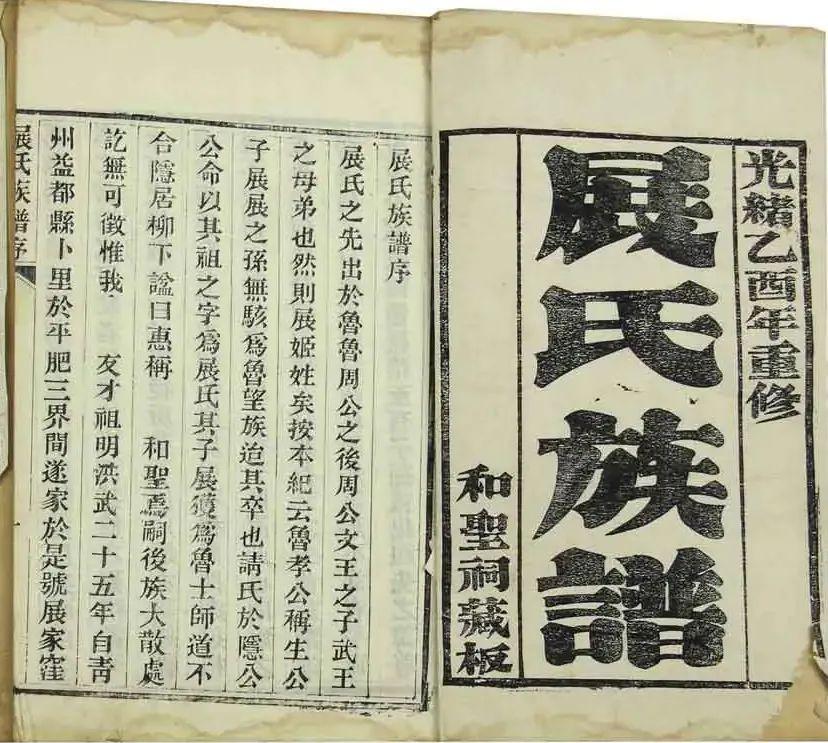 光緒乙酉年重修
展氏族譜
和聖祠藏板
展氏族譜序
展氏之先出於魯魯周公之後周公文王之子武王
之母弟也然則展姬姓矣按本紀云魯孝公稱生公
子展展之孫無駭為魯望族迨其卒也請氏於隱公
公命以其祖之字為展氏其子展獲為魯士師道不
合隱居柳下諡曰惠稱　和聖焉嗣後族大散處
訖無可徵惟我　友才祖明洪武二十五年自靑
州益都縣卜里於平肥三界間遂家於是號展家窪
展氏族譜序